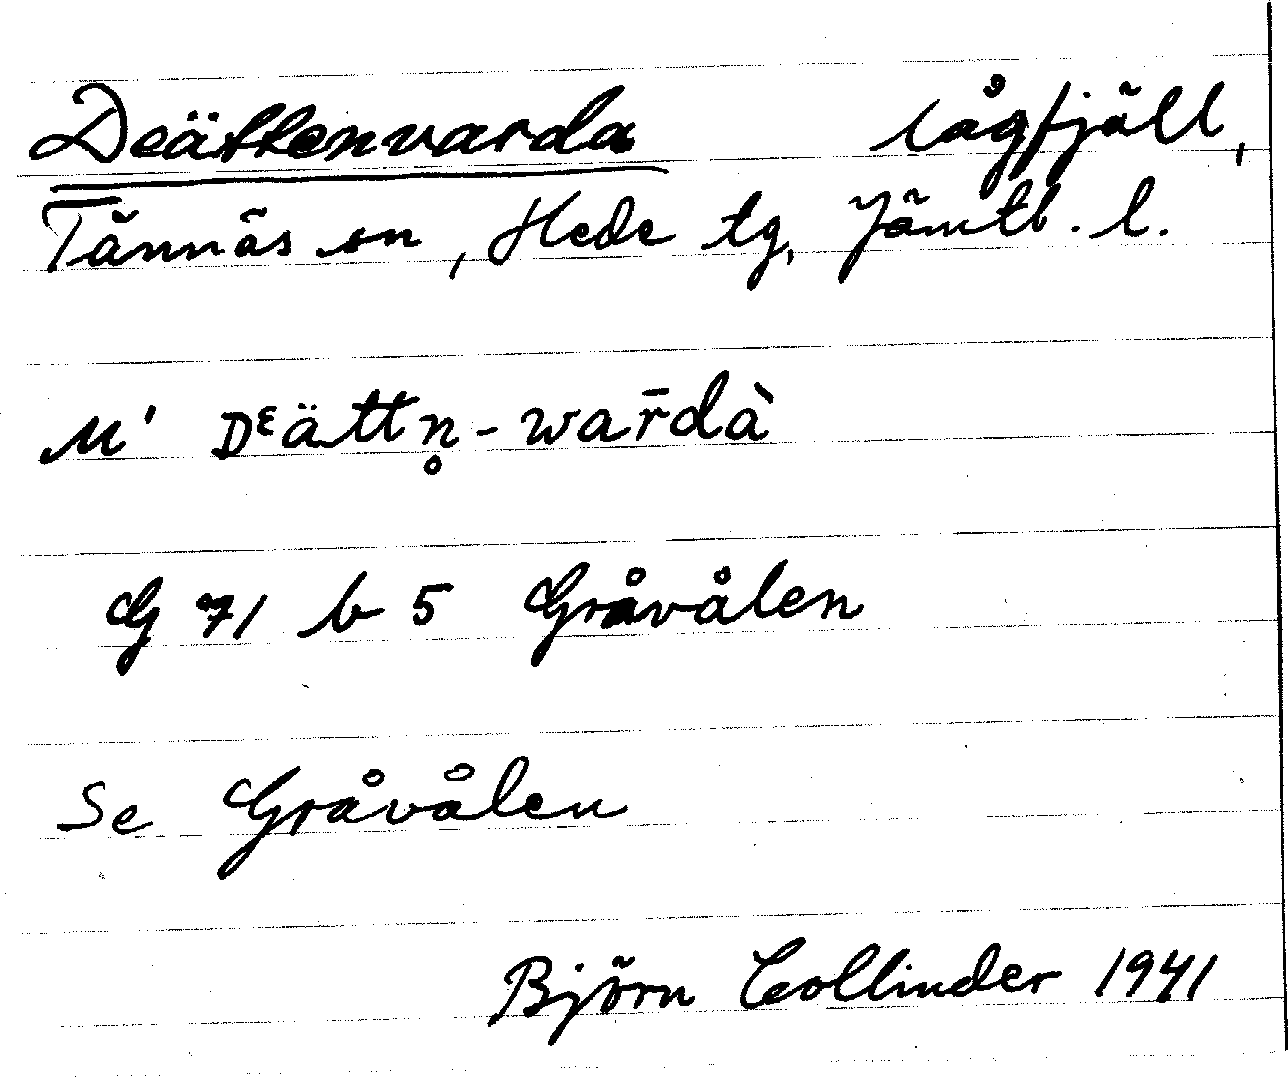 Deättenvarda lågfjäll,
Tännäs sn, Hede tg, Jämtl. l.
M' Dᵋättn̥-war̄dà
G 71 b 5 Gråvålen
Se Gråvålen
Björn Collinder 1941